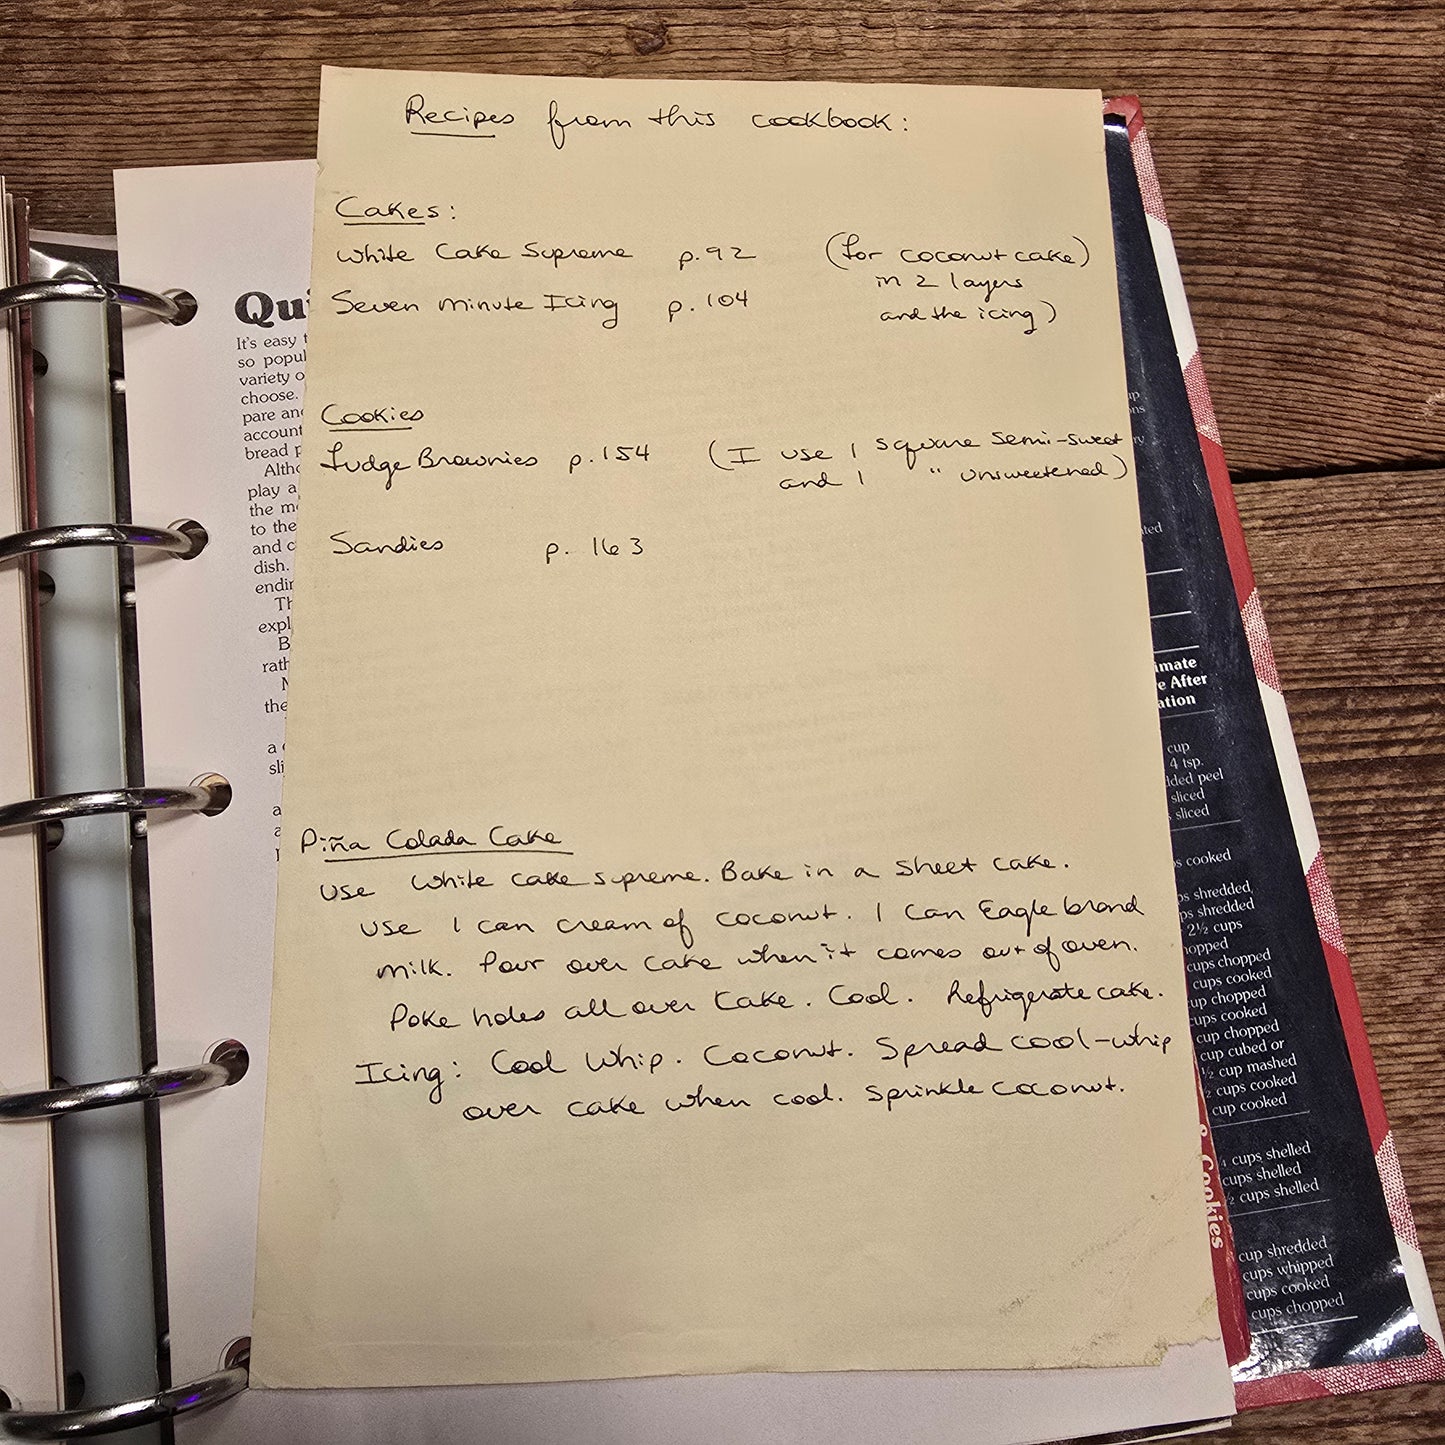 Recipes from this cookbook:
Cakes:
White Cake Supreme p.92 (for coconut cake)
in 2 layers
Seven Minute Icing p.104 and the icing)
Cookies
Fudge Brownies p.154 (I use 1 square semi-sweet
and 1 " unsweetened)
Sandies p. 163
Piña Colada Cake
Use White cake supreme. Bake in a sheet cake.
Use 1 can cream of coconut. 1 can Eagle brand
milk. Pour over cake when it comes out of oven.
Poke holes all over cake. Cool. Refrigerate cake.
Icing: Cool Whip. Coconut. Spread cool-whip
over cake when cool. Sprinkle coconut.
Qui
It's easy
so popul
variety o
choose.
pare and
account
bread p
Altho
play a
the mo
to the
and c
dish.
endin
Th
expl
B
rath
the
a
sli
a
a
imate
e After
ation
cup
4 tsp.
ded peel
sliced
sliced
s cooked
ps shredded,
ps shredded
2½ cups
hopped
cups chopped
cups cooked
up chopped
cups cooked
cup chopped
cup cubed or
½ cup mashed
cups cooked
cup cooked
cups shelled
cups shelled
½ cups shelled
cup shredded
cups whipped
cups cooked
cups chopped
& Cookies